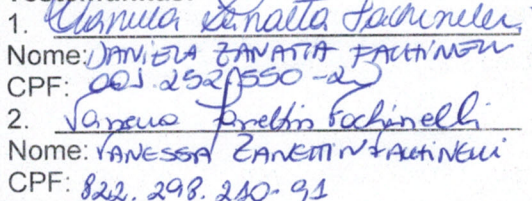 1. Daniela Zanatta Fachinelli
Nome: DANIELA ZANATTA FACHINELLI
CPF: 001.252.550-2
2. Vanessa Zanettin Fachinelli
Nome: VANESSA ZANETTIN FACHINELLI
CPF: 822.298.210-91